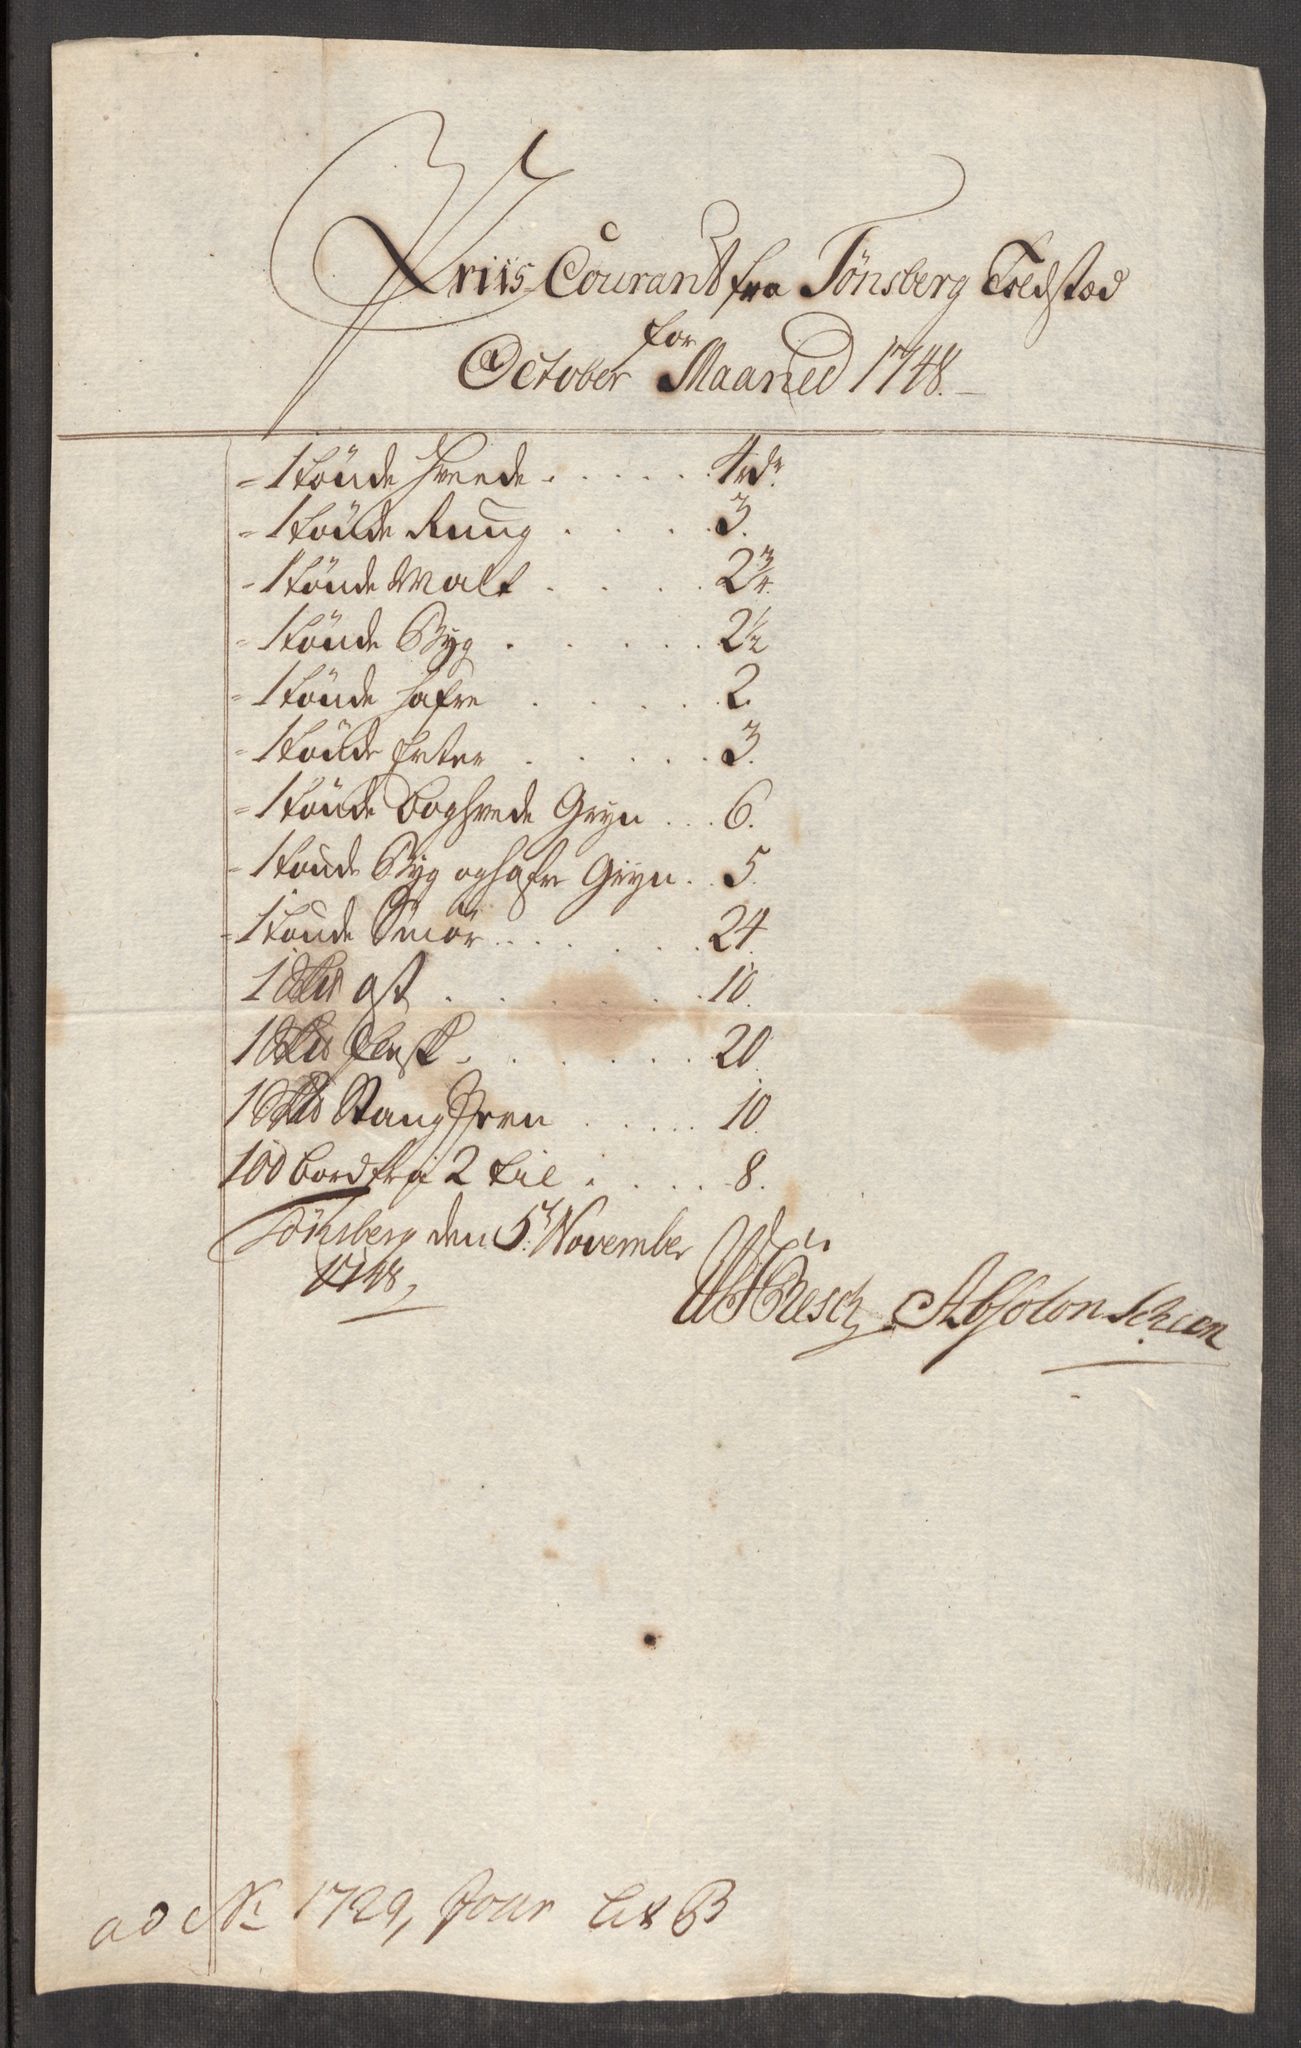 Priis Courant fra Tønsberg Toldstæd
for
October Maaned 1748.
1 tønde Hvede 4 rdr
1 tønde Rüug 3.
1 tønde Malt 2 3/4.
1 tønde Byg 2 1/2
1 tønde Hafre 2
1 tønde Erter 3.
1 tønde Boghvede Gryn 6.
1 tønde Byg og Hafre Gryn 5.
1 tønde Smör 24
1 Skd Ost 10.
1 Skd Flesk 20.
1 Skd Stang Jern 10.
100 bord fra 2 til 8.
Tønsberg den 5t November
1748,
Büsch Absolon
ad No 1729, Jour Lit B